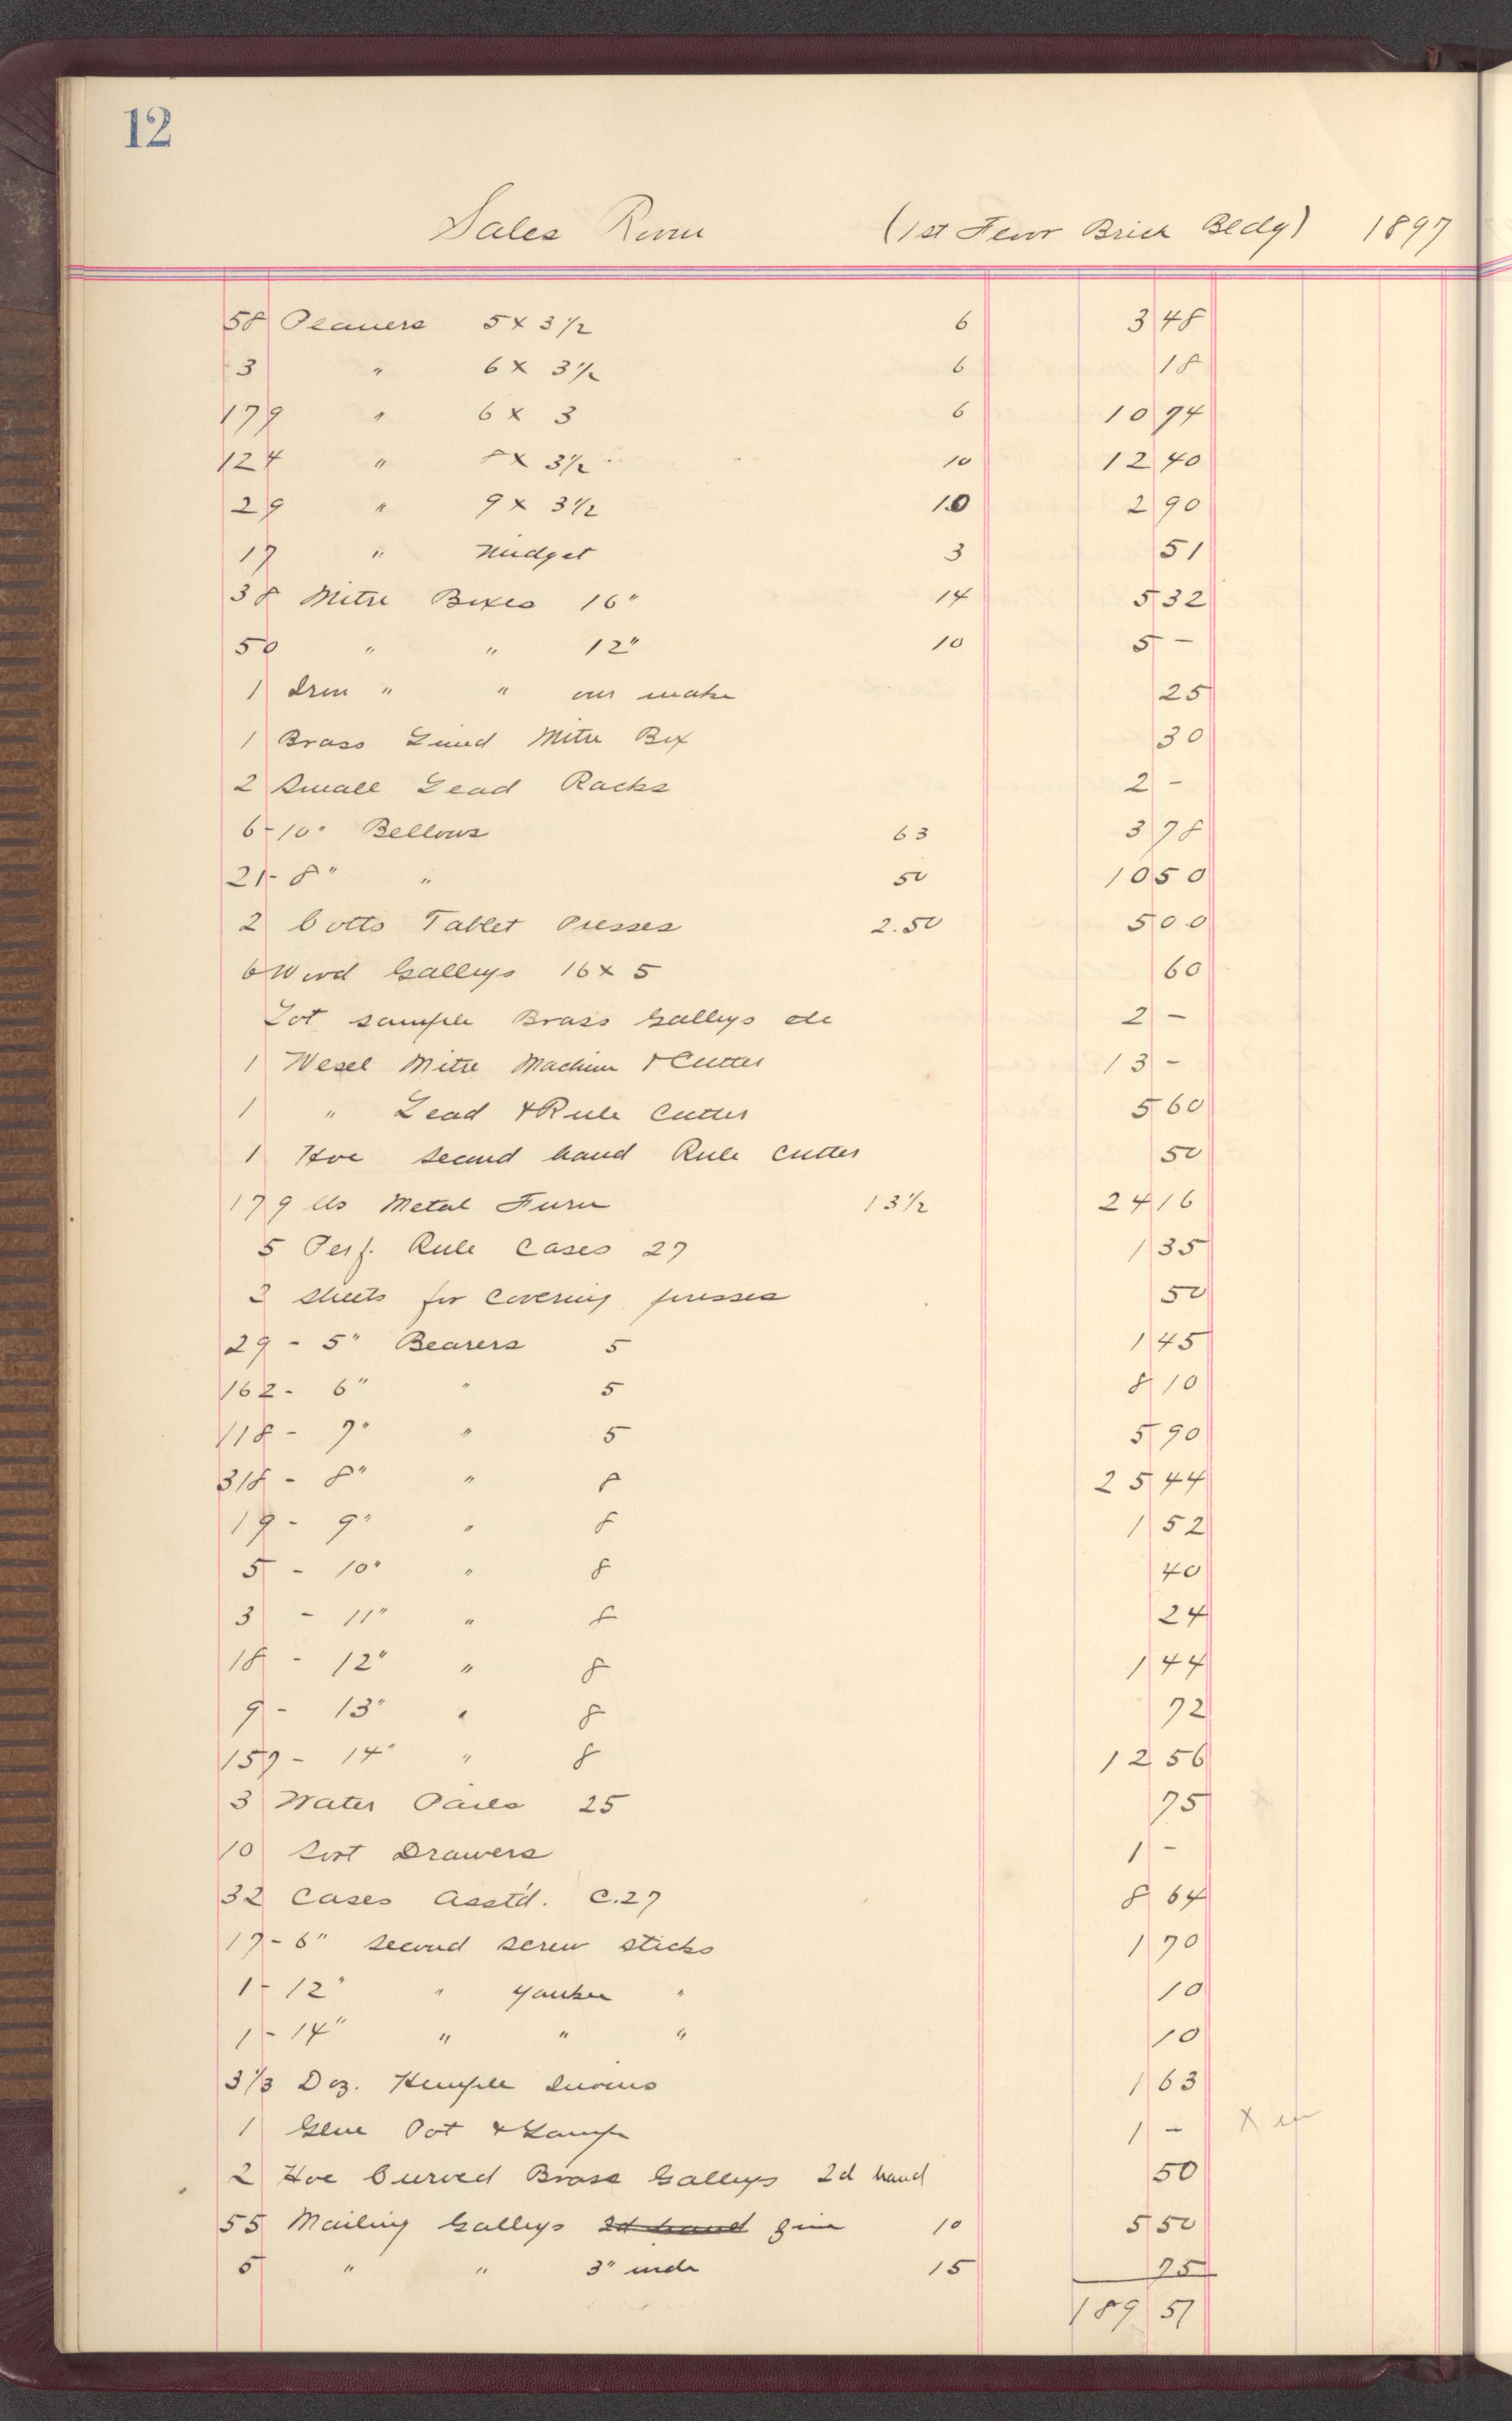 12
Sales Room (1st Floor Brick Bldg) 1897
58 Planers 5 x 3½ 6 3 48
3 " 6 x 3½ 6 18
179 " 6 x 3 6 10 74
124 " 8 x 3½ 10 12 40
29 " 9 x 3½ 10 2 90
17 " Midget 3 51
38 Mitre Boxes 16" 14 5 32
50 " " 12" 10 5 -
1 Iron " " our make 25
1 Brass Lined Mitre Box 30
2 Small Lead Racks 2 -
6 - 10" Bellows 63 3 78
21 - 8" " 50 10 50
2 Cotts Tablet Presses 2.50 5 00
6 Wood Galleys 16 x 5 60
Lot sample Brass Galleys etc 2 -
1 Wesel Mitre Machine & Cutter 13 -
1 " Lead & Rule Cutter 5 60
1 Hoe second hand Rule Cutter 50
179 lbs Metal Furn 13½ 24 16
5 Perf. Rule Cases 27 1 35
2 sheets for covering presses 50
29 - 5" Bearers 5 1 45
162 - 6" " 5 8 10
118 - 7" " 5 5 90
318 - 8" " 8 25 44
19 - 9" " 8 1 52
5 - 10" " 8 40
3 - 11" " 8 24
18 - 12" " 8 1 44
9 - 13" " 8 72
157 - 14" " 8 12 56
3 Water Pails 25 75
10 Sort Drawers 1 -
32 Cases Asst'd. C.27 8 64
17 - 6" second screw sticks 1 70
1 - 12" " Yankee " 10
1 - 14" " " " 10
3⅓ Doz. Hemple Quoins 1 63
1 Glue Pot & Lamp 1 - X
2 Hoe Curved Brass Galleys 2d hand 50
55 Mailing Galleys 2d hand 10 5 50
5 " " 3" wide 15 75
189 51